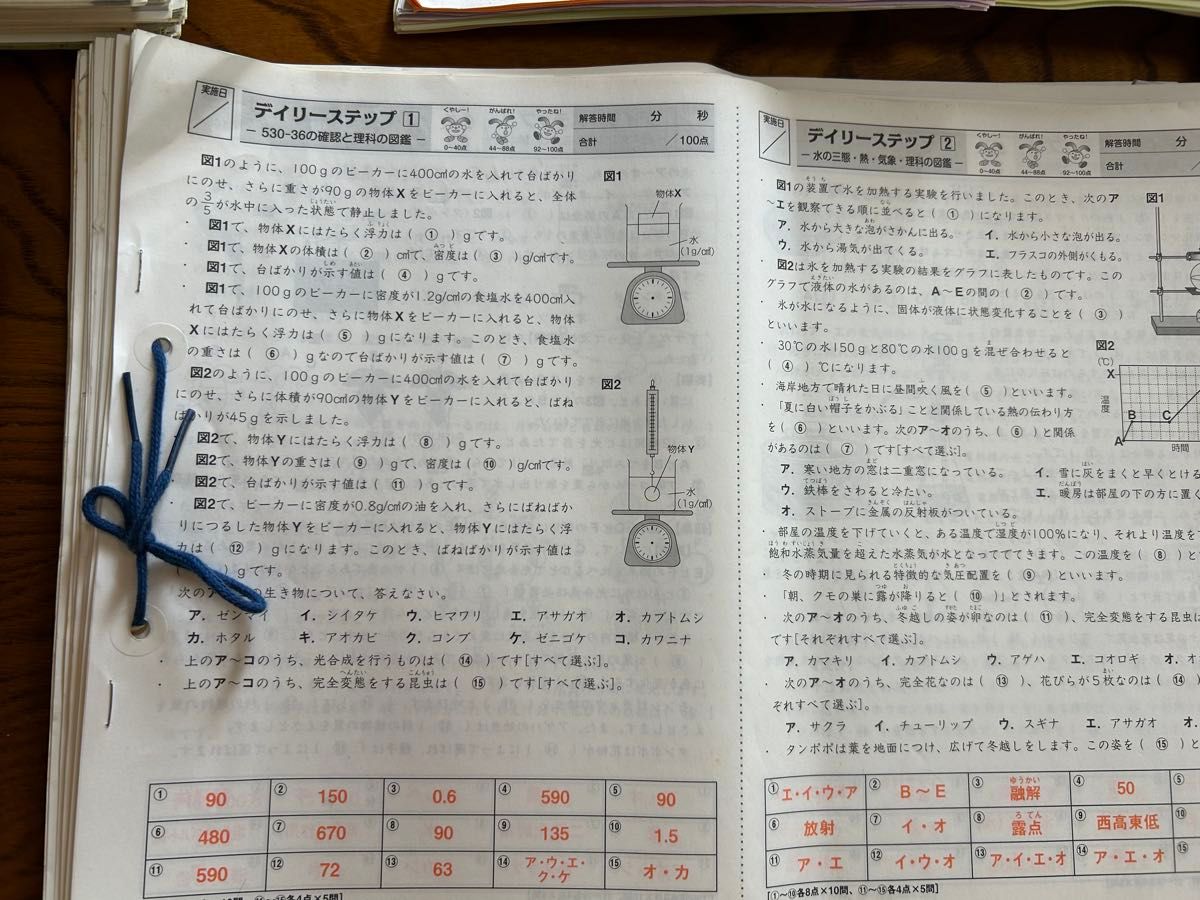 実施日
デイリーステップ 1
― 530-36の確認と理科の図鑑 ―
くやしー! がんばれ! やったね!
0~40点 44~88点 92~100点
解答時間 分 秒
合計 /100点
図1のように、100gのビーカーに400cm³の水を入れて台ばかり
にのせ、さらに重さが90gの物体Xをビーカーに入れると、全体
の3/5が水中に入った状態で静止しました。
図1で、物体Xにはたらく浮力は( ① )gです。
図1で、物体Xの体積は( ② )cm³で、密度は( ③ )g/cm³です。
図1で、台ばかりが示す値は( ④ )gです。
図1で、100gのビーカーに密度が1.2g/cm³の食塩水を400cm³入
れて台ばかりにのせ、さらに物体Xをビーカーに入れると、物体
Xにはたらく浮力は( ⑤ )gになります。このとき、食塩水
の重さは( ⑥ )gなので台ばかりが示す値は( ⑦ )gです。
図2のように、100gのビーカーに400cm³の水を入れて台ばかり
にのせ、さらに体積が90cm³の物体Yをビーカーに入れると、ばね
ばかりが45gを示しました。
図2で、物体Yにはたらく浮力は( ⑧ )gです。
図2で、物体Yの重さは( ⑨ )gで、密度は( ⑩ )g/cm³です。
図2で、台ばかりが示す値は( ⑪ )gです。
図2で、ビーカーに密度が0.8g/cm³の油を入れ、さらにばねばか
りにつるした物体Yをビーカーに入れると、物体Yにはたらく浮
力は( ⑫ )gになります。このとき、ばねばかりが示す値は
)gです。
次のア の生き物について、答えなさい。
ア. ゼンマイ イ. シイタケ ウ. ヒマワリ エ. アサガオ オ. カブトムシ
カ. ホタル キ. アオカビ ク. コンブ ケ. ゼニゴケ コ. カワニナ
・ 上のア~コのうち、光合成を行うものは( ⑭ )です[すべて選ぶ]。
・ 上のア~コのうち、完全変態をする昆虫は( ⑮ )です[すべて選ぶ]。
図1
物体X
水
(1g/cm³)
図2
物体Y
水
(1g/cm³)
① 90 ② 150 ③ 0.6 ④ 590 ⑤ 90
⑥ 480 ⑦ 670 ⑧ 90 ⑨ 135 ⑩ 1.5
⑪ 590 ⑫ 72 ⑬ 63 ⑭ ア・ウ・エ・ク・ケ ⑮ オ・カ
[①~⑩各8点×10問、⑪~⑮各4点×5問]
実施日
デイリーステップ 2
― 水の三態・熱・気象・理科の図鑑 ―
くやしー! がんばれ! やったね!
0~40点 44~88点 92~100点
解答時間 分
合計
図1の装置で水を加熱する実験を行いました。このとき、次のア
~エを観察できる順に並べると( ① )になります。
ア. 水から大きな泡がさかんに出る。 イ. 水から小さな泡が出る。
ウ. 水から湯気が出てくる。 エ. フラスコの外側がくもる。
図2は氷を加熱する実験の結果をグラフに表したものです。この
グラフで液体の水があるのは、A~Eの間の( ② )です。
・ 氷が水になるように、固体が液体に状態変化することを( ③ )
といいます。
・ 30℃の水150gと80℃の水100gを混ぜ合わせると
( ④ )℃になります。
・ 海岸地方で晴れた日に昼間吹く風を( ⑤ )といいます。
・ 「夏に白い帽子をかぶる」ことと関係している熱の伝わり方
を( ⑥ )といいます。次のア~オのうち、( ⑥ )と関係
があるのは( ⑦ )です[すべて選ぶ]。
ア. 寒い地方の窓は二重窓になっている。 イ. 雪に灰をまくと早くとける
ウ. 鉄棒をさわると冷たい。 エ. 暖房は部屋の下の方に置く
オ. ストーブに金属の反射板がついている。
・ 部屋の温度を下げていくと、ある温度で湿度が100%になり、それより温度を
飽和水蒸気量を超えた水蒸気が水となってでてきます。この温度を( ⑧ )と
・ 冬の時期に見られる特徴的な気圧配置を( ⑨ )といいます。
・ 「朝、クモの巣に露が降りると( ⑩ )」とされます。
・ 次のア~オのうち、冬越しの姿が卵なのは( ⑪ )、完全変態をする昆虫は
です[それぞれすべて選ぶ]。
ア. カマキリ イ. カブトムシ ウ. アゲハ エ. コオロギ オ.
・ 次のア~オのうち、完全花なのは( ⑬ )、花びらが5枚なのは( ⑭ )
ぞれすべて選ぶ]。
ア. サクラ イ. チューリップ ウ. スギナ エ. アサガオ オ.
・ タンポポは葉を地面につけ、広げて冬越しをします。この姿を( ⑮ )と
図1
図2
(℃)
X
温度
A
B
C
時間
① エ・イ・ウ・ア ② B~E ③ 融解 ④ 50 ⑤
⑥ 放射 ⑦ イ・オ ⑧ 露点 ⑨ 西高東低 ⑩
⑪ ア・エ ⑫ イ・ウ・オ ⑬ ア・イ・エ・オ ⑭ ア・エ・オ ⑮
[①~⑩各8点×10問、⑪~⑮各4点×5問]